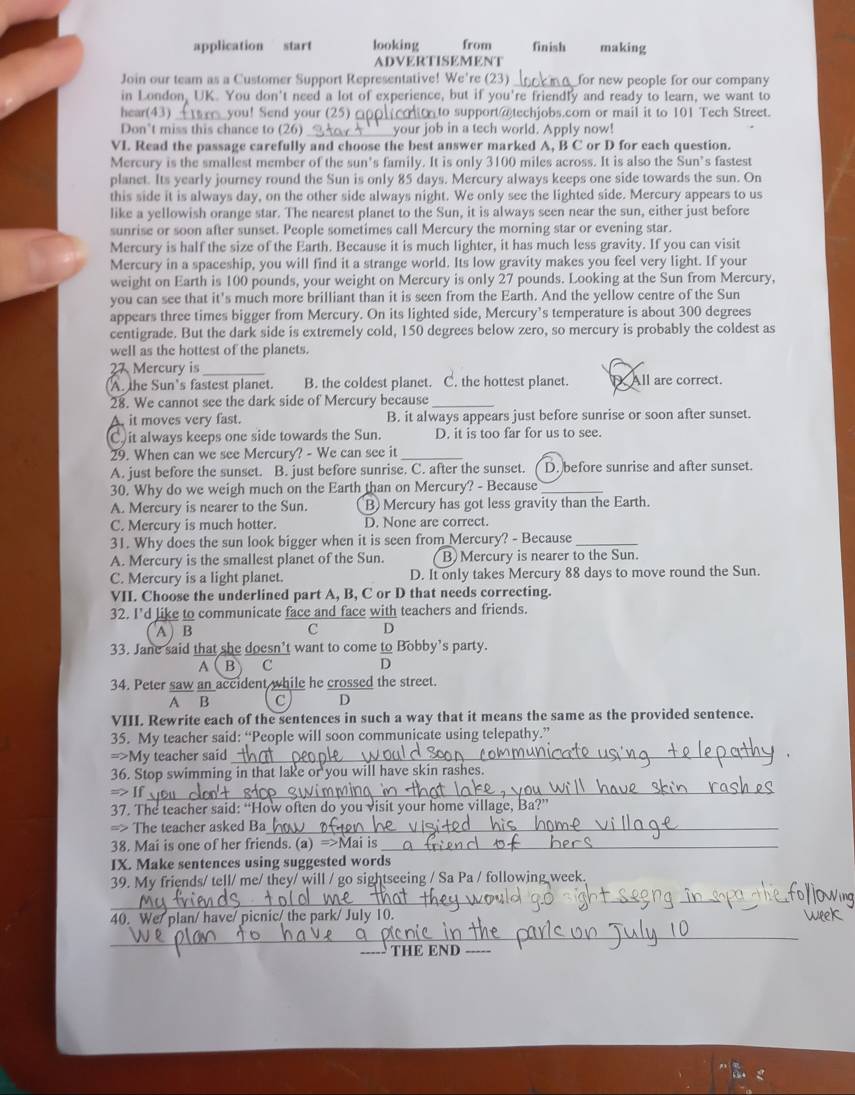 application start looking from finish making
ADVERTISEMENT
Join our team as a Customer Support Representative! We're (23) looking for new people for our company
in London, UK. You don't need a lot of experience, but if you're friendly and ready to learn, we want to
hear(43) from you! Send your (25) application to support@techjobs.com or mail it to 101 Tech Street.
Don't miss this chance to (26) start your job in a tech world. Apply now!
VI. Read the passage carefully and choose the best answer marked A, B C or D for each question.
Mercury is the smallest member of the sun's family. It is only 3100 miles across. It is also the Sun's fastest
planet. Its yearly journey round the Sun is only 85 days. Mercury always keeps one side towards the sun. On
this side it is always day, on the other side always night. We only see the lighted side. Mercury appears to us
like a yellowish orange star. The nearest planet to the Sun, it is always seen near the sun, either just before
sunrise or soon after sunset. People sometimes call Mercury the morning star or evening star.
Mercury is half the size of the Earth. Because it is much lighter, it has much less gravity. If you can visit
Mercury in a spaceship, you will find it a strange world. Its low gravity makes you feel very light. If your
weight on Earth is 100 pounds, your weight on Mercury is only 27 pounds. Looking at the Sun from Mercury,
you can see that it's much more brilliant than it is seen from the Earth. And the yellow centre of the Sun
appears three times bigger from Mercury. On its lighted side, Mercury's temperature is about 300 degrees
centigrade. But the dark side is extremely cold, 150 degrees below zero, so mercury is probably the coldest as
well as the hottest of the planets.
27. Mercury is ________
A. the Sun's fastest planet. B. the coldest planet. C. the hottest planet. D. All are correct.
28. We cannot see the dark side of Mercury because ________
A. it moves very fast. B. it always appears just before sunrise or soon after sunset.
C. it always keeps one side towards the Sun. D. it is too far for us to see.
29. When can we see Mercury? - We can see it ________
A. just before the sunset. B. just before sunrise. C. after the sunset. D. before sunrise and after sunset.
30. Why do we weigh much on the Earth than on Mercury? - Because ________
A. Mercury is nearer to the Sun. B. Mercury has got less gravity than the Earth.
C. Mercury is much hotter. D. None are correct.
31. Why does the sun look bigger when it is seen from Mercury? - Because ________
A. Mercury is the smallest planet of the Sun. B. Mercury is nearer to the Sun.
C. Mercury is a light planet. D. It only takes Mercury 88 days to move round the Sun.
VII. Choose the underlined part A, B, C or D that needs correcting.
32. I'd like to communicate face and face with teachers and friends.
A B C D
33. Jane said that she doesn't want to come to Bobby's party.
A B C D
34. Peter saw an accident while he crossed the street.
A B C D
VIII. Rewrite each of the sentences in such a way that it means the same as the provided sentence.
35. My teacher said: "People will soon communicate using telepathy."
=>My teacher said that people would soon communicate using telepathy.
36. Stop swimming in that lake or you will have skin rashes.
=> If you don't stop swimming in that lake, you will have skin rashes
37. The teacher said: "How often do you visit your home village, Ba?"
=> The teacher asked Ba how often he visited his home village
38. Mai is one of her friends. (a) =>Mai is a friend of hers
IX. Make sentences using suggested words
39. My friends/ tell/ me/ they/ will / go sightseeing / Sa Pa / following week.
My friends told me that they would go sight seeng in sapa the following
week
40. We/ plan/ have/ picnic/ the park/ July 10.
We plan to have a picnic in the park on July 10
----- THE END -----